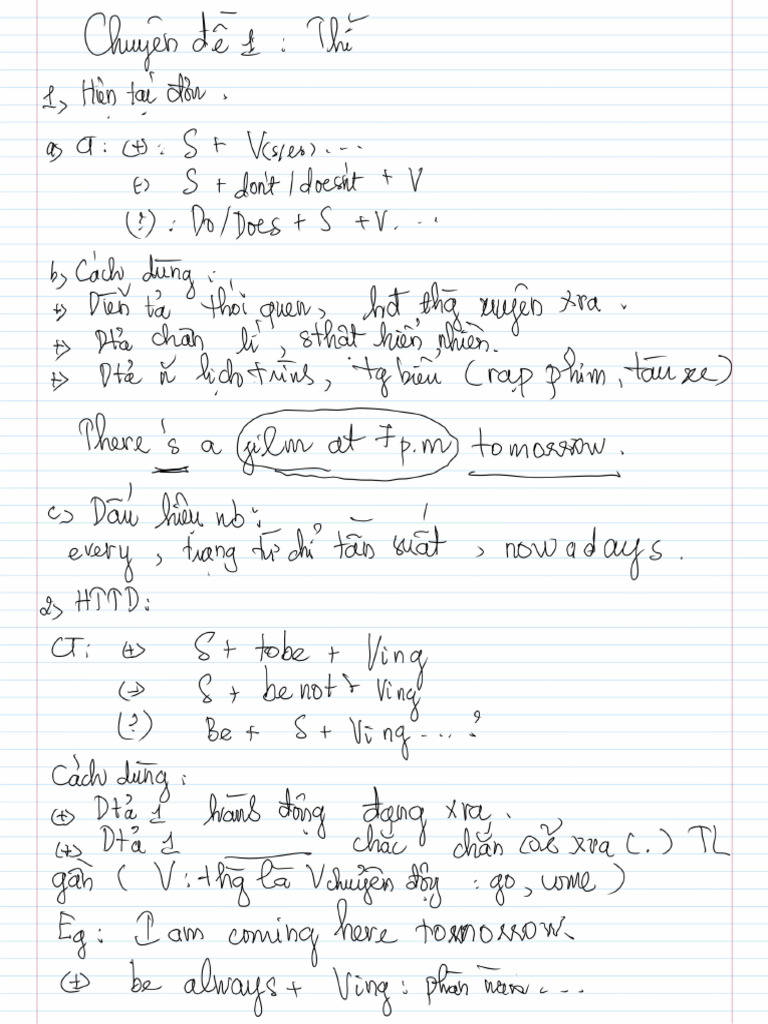 Chuyên đề 1 : Thì
1, Hiện tại đơn .
a, CT : (+) : S + V(s/es) ....
(-) S + don't / doesn't + V
(?) : Do/Does + S + V. ...
b, Cách dùng :
+) Diễn tả thói quen, hđ thg xuyên xra .
+) Dtả chân lí , sthật hiển nhiên.
+) Dtả lịch trình, tg biểu (rạp phim, tàu xe)
There's a film at 7 p.m tomorrow.
c, Dấu hiệu nb :
every , trạng từ chỉ tần suất , nowadays .
2, HTTD :
CT : (+) S + tobe + Ving
(-) S + be not + Ving
(?) Be + S + Ving ....?
Cách dùng :
(+) Dtả 1 hành động đang xra .
(+) Dtả 1 ______ chắc chắn sẽ xra (.) TL
gần ( V : thg là V chuyển độg : go, come )
Eg : I am coming here tomorrow.
(+) be always + Ving : phàn nàn ....